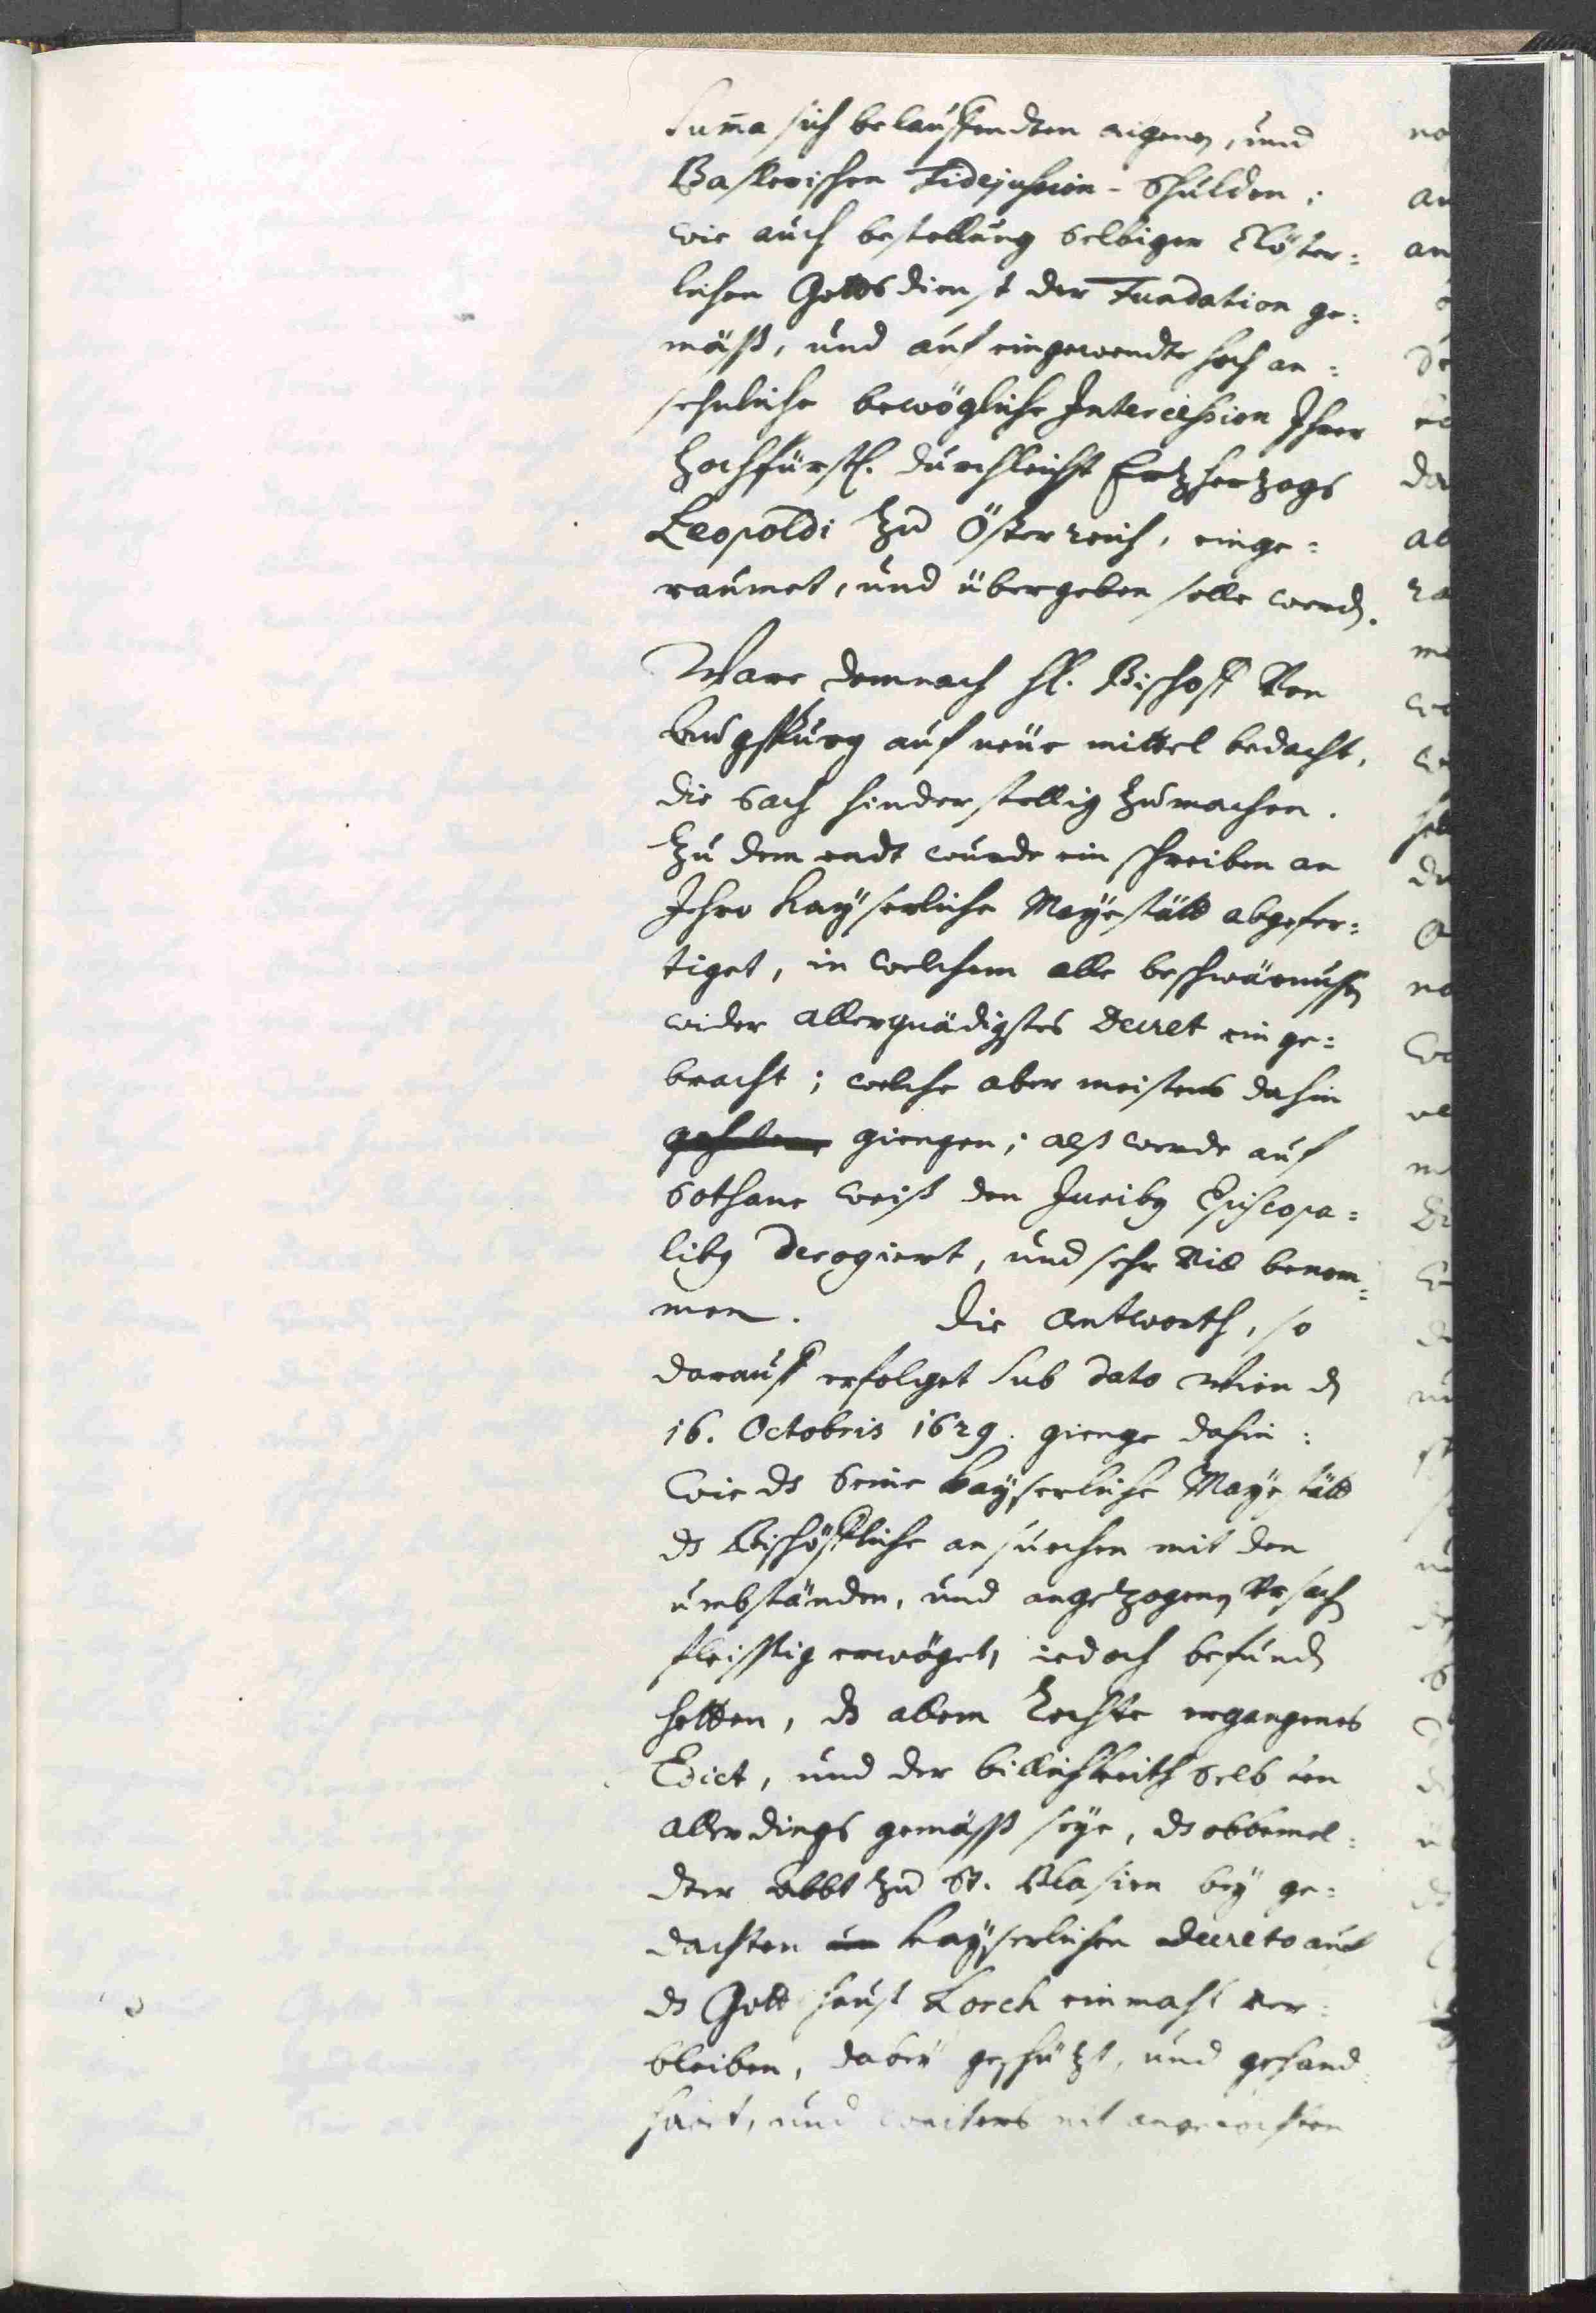 Summa sich belauffendten aignen, und
Baslerischen Fidejussion-Schulden;
wie auch bestellung selbiger Clöster=
lichen Gottsdienst der Fundation ge=
mäß, und auf eingewendte hoch an=
sehnliche bewögliche Intercession Ihrer
Hochfürstl. Durchleicht Ertzhertzogs
Leopoldi zu Österreich, einge=
raumet, und übergeben solle werden.
Ware demnach Hl. Bischoff Von
Augspurg auf neüe mittel bedacht,
die Sach hinderstellig zumachen.
Zu dem endt wurde ein schreiben an
Ihro Kayserliche Mayestätt abgefer=
tiget, in welchem alle beschwärnussen
wider allergnädigstes Decret einge=
bracht; welche aber meistens dahin
giengen; alß werde auf
Sothane weiß den Juribus Episcopa=
libus derogiert, und sehr Vil benom=
men. Die Antworth, so
darauff erfolget sub dato Wien den
16. Octobris 1629. gienge dahin:
Wie ds Seine Kayserliche Mayestätt
ds Bischöffliche ansuechen mit den
umbständen, und angetzogenen Ursachen
fleissig erwöget, iedoch befunden
hetten, ds allem Rechte ergangenes
Edict, und der billichkeith selbsten
allerdings gemäß seye, ds obbemel=
dter Abbt zu St. Blasien bey ge=
dachten Kayserlichen Decreto auf
ds Gottshauß Lorch einmahl ver=
bleiben, dabey geschützt, und gehand=
habt, und weiters nit angefochten